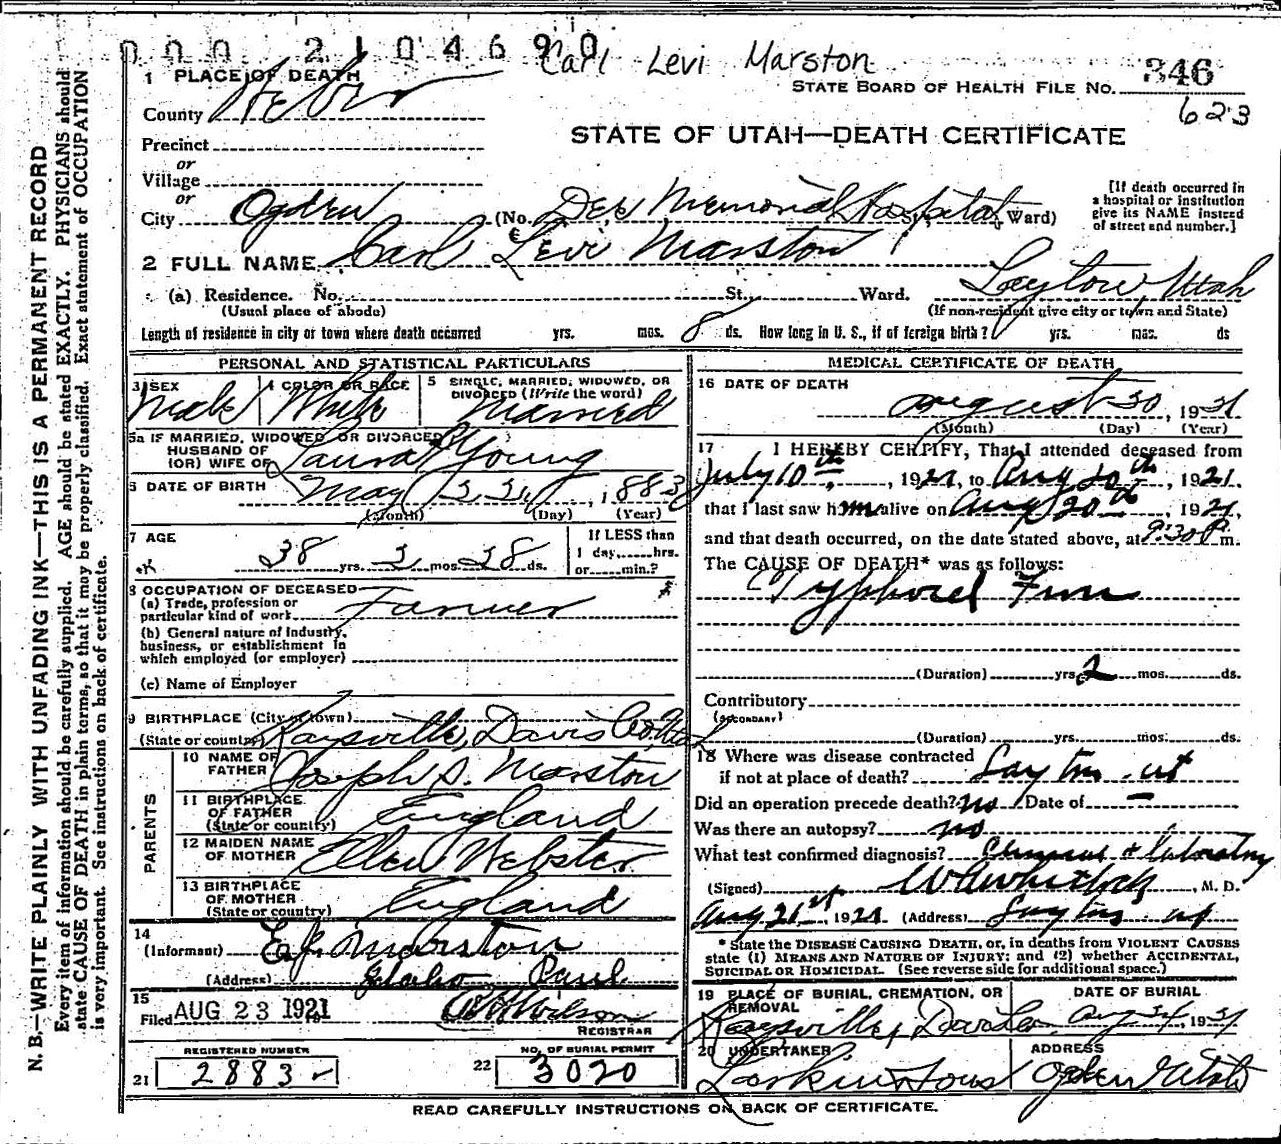 000 2104690
Carl Levi Marston
346
STATE BOARD OF HEALTH FILE No.
623
STATE OF UTAH—DEATH CERTIFICATE
1 PLACE OF DEATH
County Weber
Precinct
or
Village
or
City Ogden (No. Dee Memorial Hospital St., Ward)
[If death occurred in
a hospital or institution
give its NAME instead
of street and number.]
2 FULL NAME Carl Levi Marston
(a) Residence. No. St., Ward. Layton, Utah
(Usual place of abode) (If non-resident give city or town and State)
Length of residence in city or town where death occurred yrs. mos. 8 ds. How long in U. S., if of foreign birth? yrs. mos. ds
PERSONAL AND STATISTICAL PARTICULARS
3 SEX Male
4 COLOR OR RACE White
5 SINGLE, MARRIED, WIDOWED, OR
DIVORCED (Write the word)
Married
5a IF MARRIED, WIDOWED OR DIVORCED
HUSBAND OF
(OR) WIFE OF Laura Young
6 DATE OF BIRTH May 22, 1883
(Month) (Day) (Year)
7 AGE
38 yrs. 2 mos. 28 ds.
If LESS than
1 day, hrs.
or min.?
8 OCCUPATION OF DECEASED
(a) Trade, profession or
particular kind of work Farmer
(b) General nature of industry,
business, or establishment in
which employed (or employer)
(c) Name of Employer
9 BIRTHPLACE (City or town)
(State or country) Kaysville, Davis Co, Utah
PARENTS
10 NAME OF
FATHER Joseph S. Marston
11 BIRTHPLACE
OF FATHER
(State or country) England
12 MAIDEN NAME
OF MOTHER Ellen Webster
13 BIRTHPLACE
OF MOTHER
(State or country) England
14
(Informant) E. J. Marston
(Address) Idaho
15
Filed AUG 23 1921 Wilson
REGISTRAR
REGISTERED NUMBER
21 2883
NO. OF BURIAL PERMIT
22 3020
MEDICAL CERTIFICATE OF DEATH
16 DATE OF DEATH
August 20, 1921
(Month) (Day) (Year)
17 I HEREBY CERTIFY, That I attended deceased from
July 10th, 1921, to Aug 20th, 1921.
that I last saw him alive on Aug 20th, 1921,
and that death occurred, on the date stated above, at 9:30 P. m.
The CAUSE OF DEATH* was as follows:
Typhoid Fever
(Duration) yrs. 2 mos. ds.
Contributory
(SECONDARY)
(Duration) yrs. mos. ds.
18 Where was disease contracted
if not at place of death? Layton, Ut
Did an operation precede death? no Date of —
Was there an autopsy? no
What test confirmed diagnosis? & laboratory
(Signed) Whitlock, M. D.
Aug 21st, 1921 (Address) Layton Ut
* State the DISEASE CAUSING DEATH, or, in deaths from VIOLENT CAUSES
state (1) MEANS AND NATURE OF INJURY; and (2) whether ACCIDENTAL,
SUICIDAL OR HOMICIDAL. (See reverse side for additional space.)
19 PLACE OF BURIAL, CREMATION, OR
REMOVAL
Kaysville, Davis Co.
DATE OF BURIAL
Aug 24, 1921
20 UNDERTAKER
Larkin & Sons
ADDRESS
Ogden Utah
READ CAREFULLY INSTRUCTIONS ON BACK OF CERTIFICATE.
N. B.—WRITE PLAINLY WITH UNFADING INK—THIS IS A PERMANENT RECORD
Every item of information should be carefully supplied. AGE should be stated EXACTLY. PHYSICIANS should
state CAUSE OF DEATH in plain terms, so that it may be properly classified. Exact statement of OCCUPATION
is very important. See instructions on back of certificate.